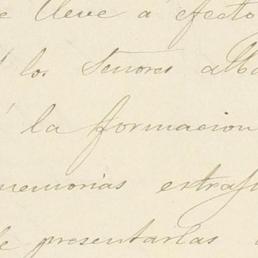 lleve á efecto
los Señores alba
la formacion
memorias estraju
presentarlas